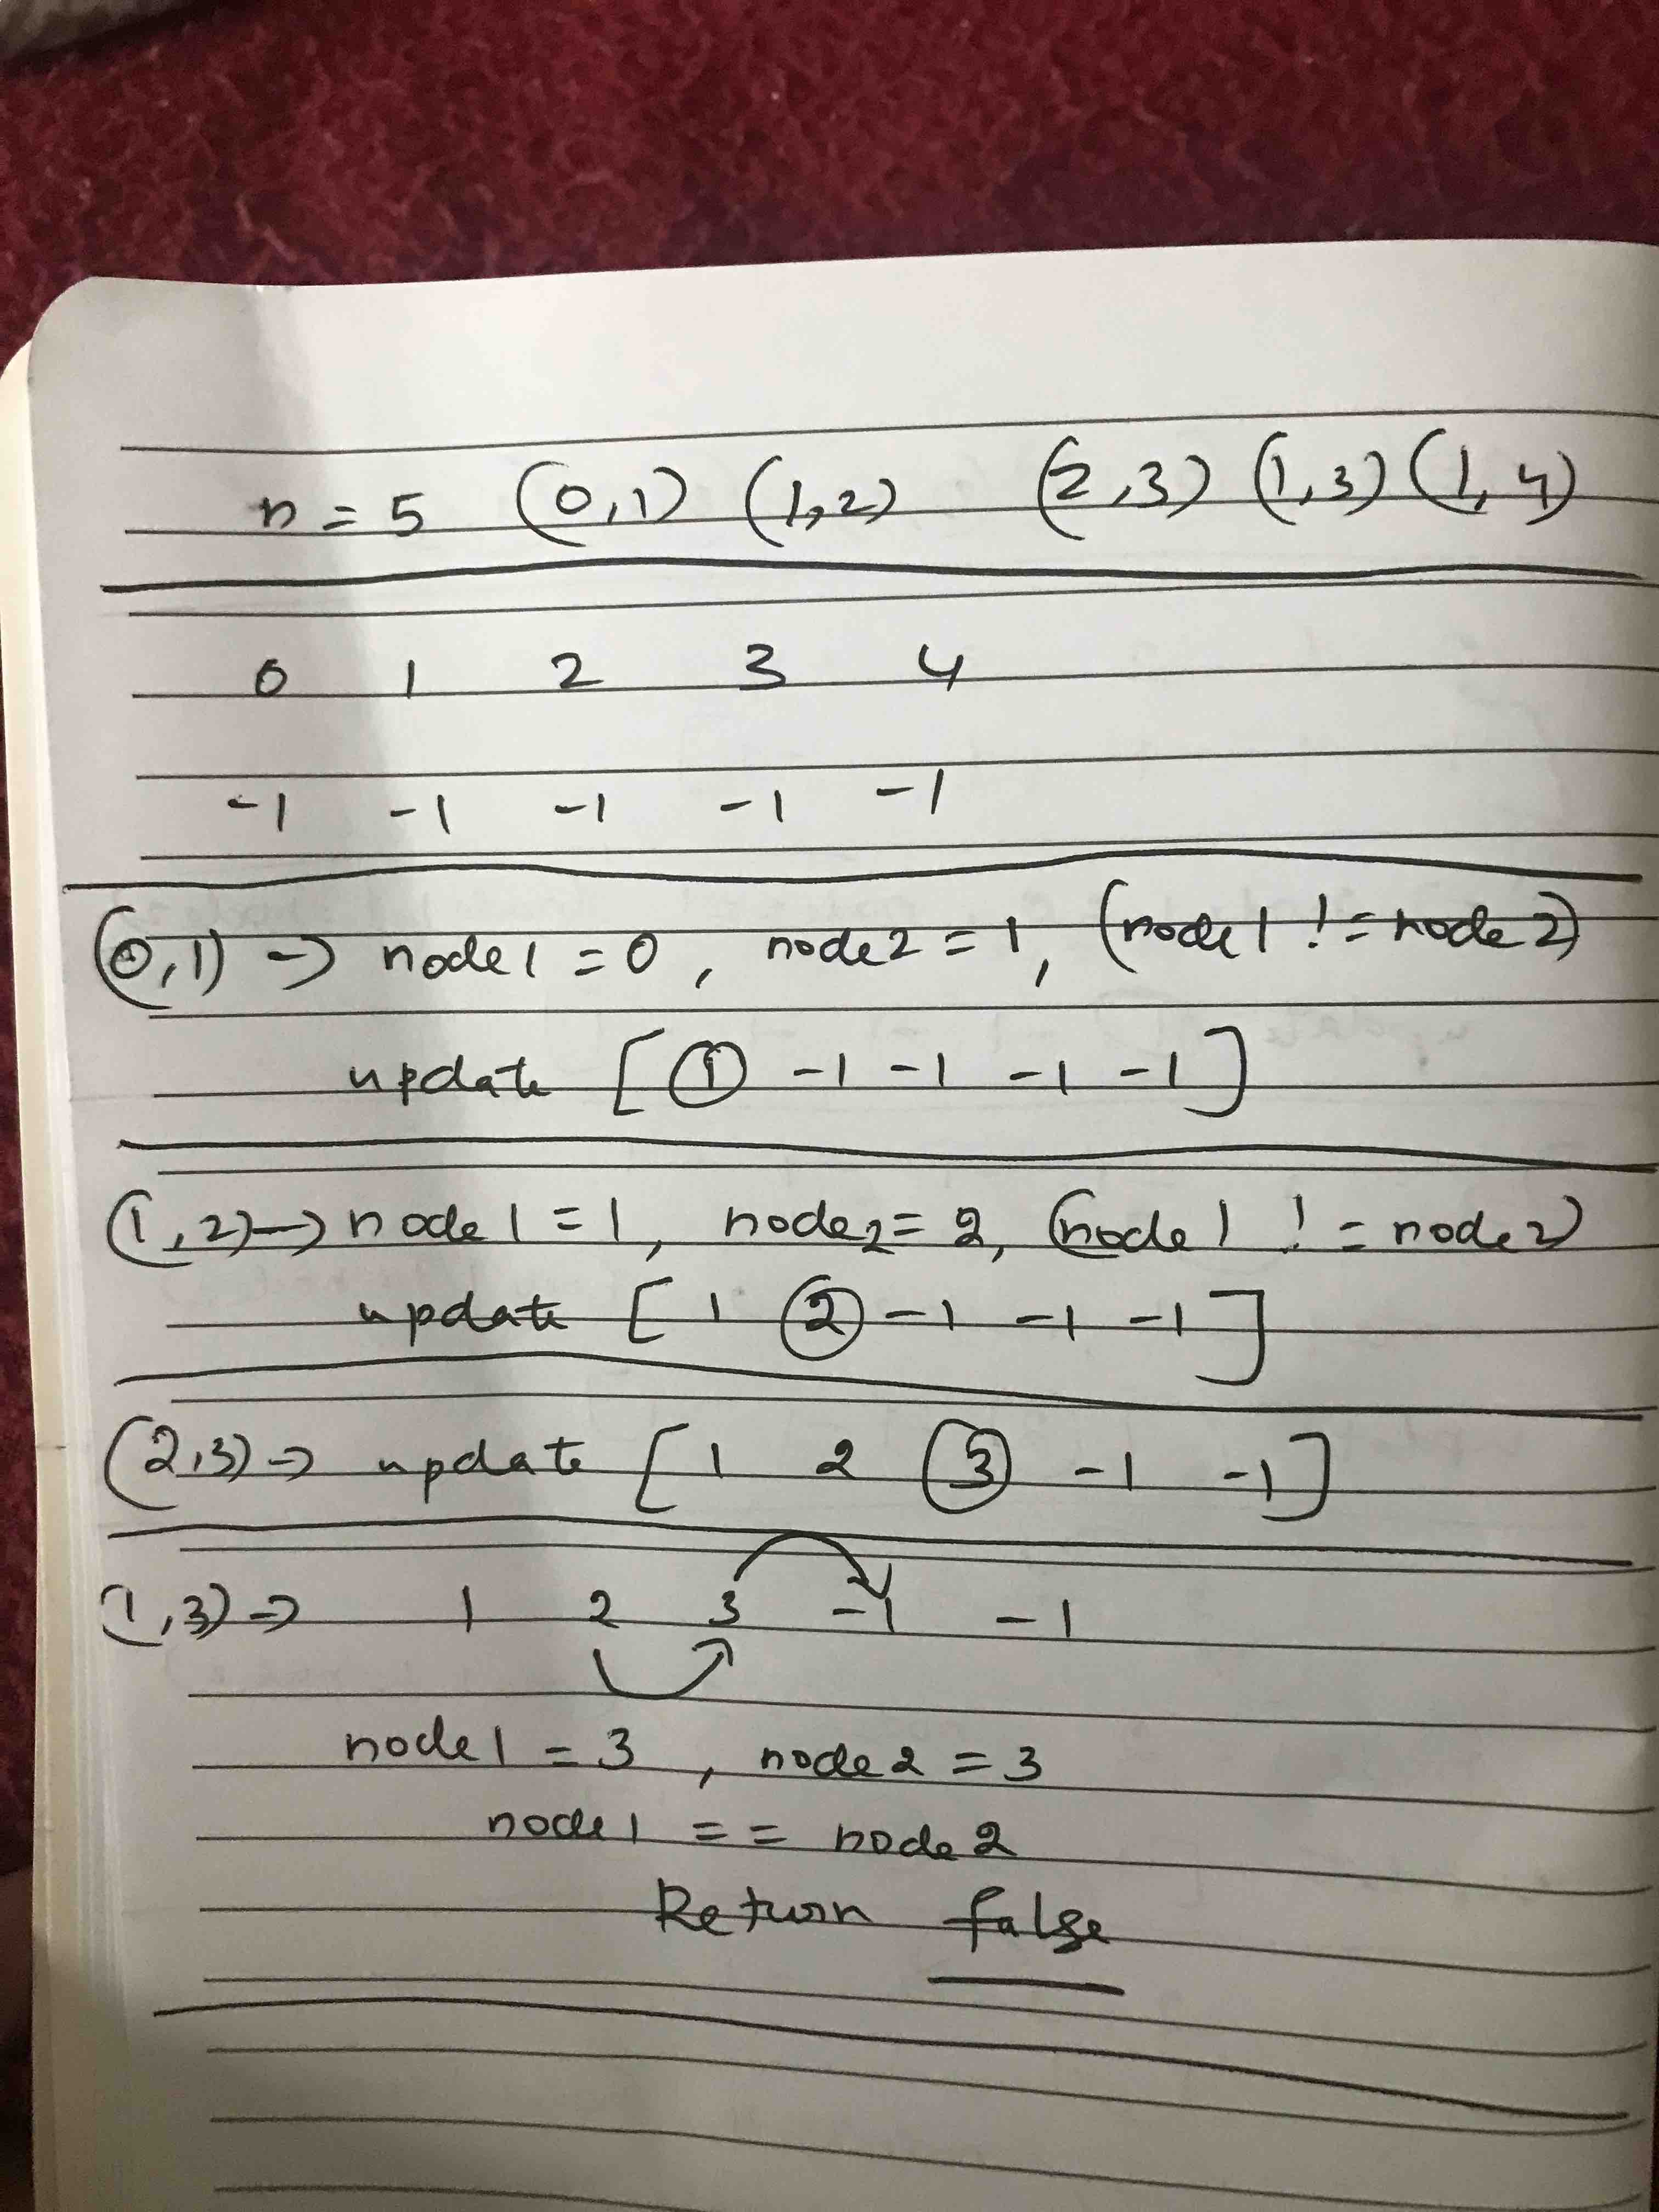 n = 5 (0,1) (1,2) (2,3) (1,3) (1,4)
0 1 2 3 4
-1 -1 -1 -1 -1
(0,1) -> node1 = 0, node2 = 1, (node1 != node2)
update [1 -1 -1 -1 -1]
(1,2) -> node1 = 1, node2 = 2, (node1 != node2)
update [1 2 -1 -1 -1]
(2,3) -> update [1 2 3 -1 -1]
(1,3) -> 1 2 3 -1 -1
node1 = 3, node2 = 3
node1 == node2
Return false